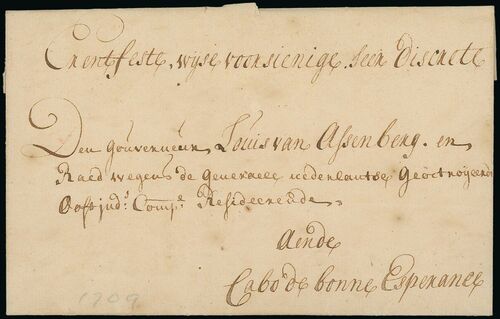 Erentfeste, wyse voorsienige, seer Discrete
Den Gouverneur, Louis van Assenberg. en
Raed wegens de Generaele nederlantse Geoctroyeerde
Oost ind:s Comp:e Resideerende,
Aende
Cabo de bonne Esperance
1709